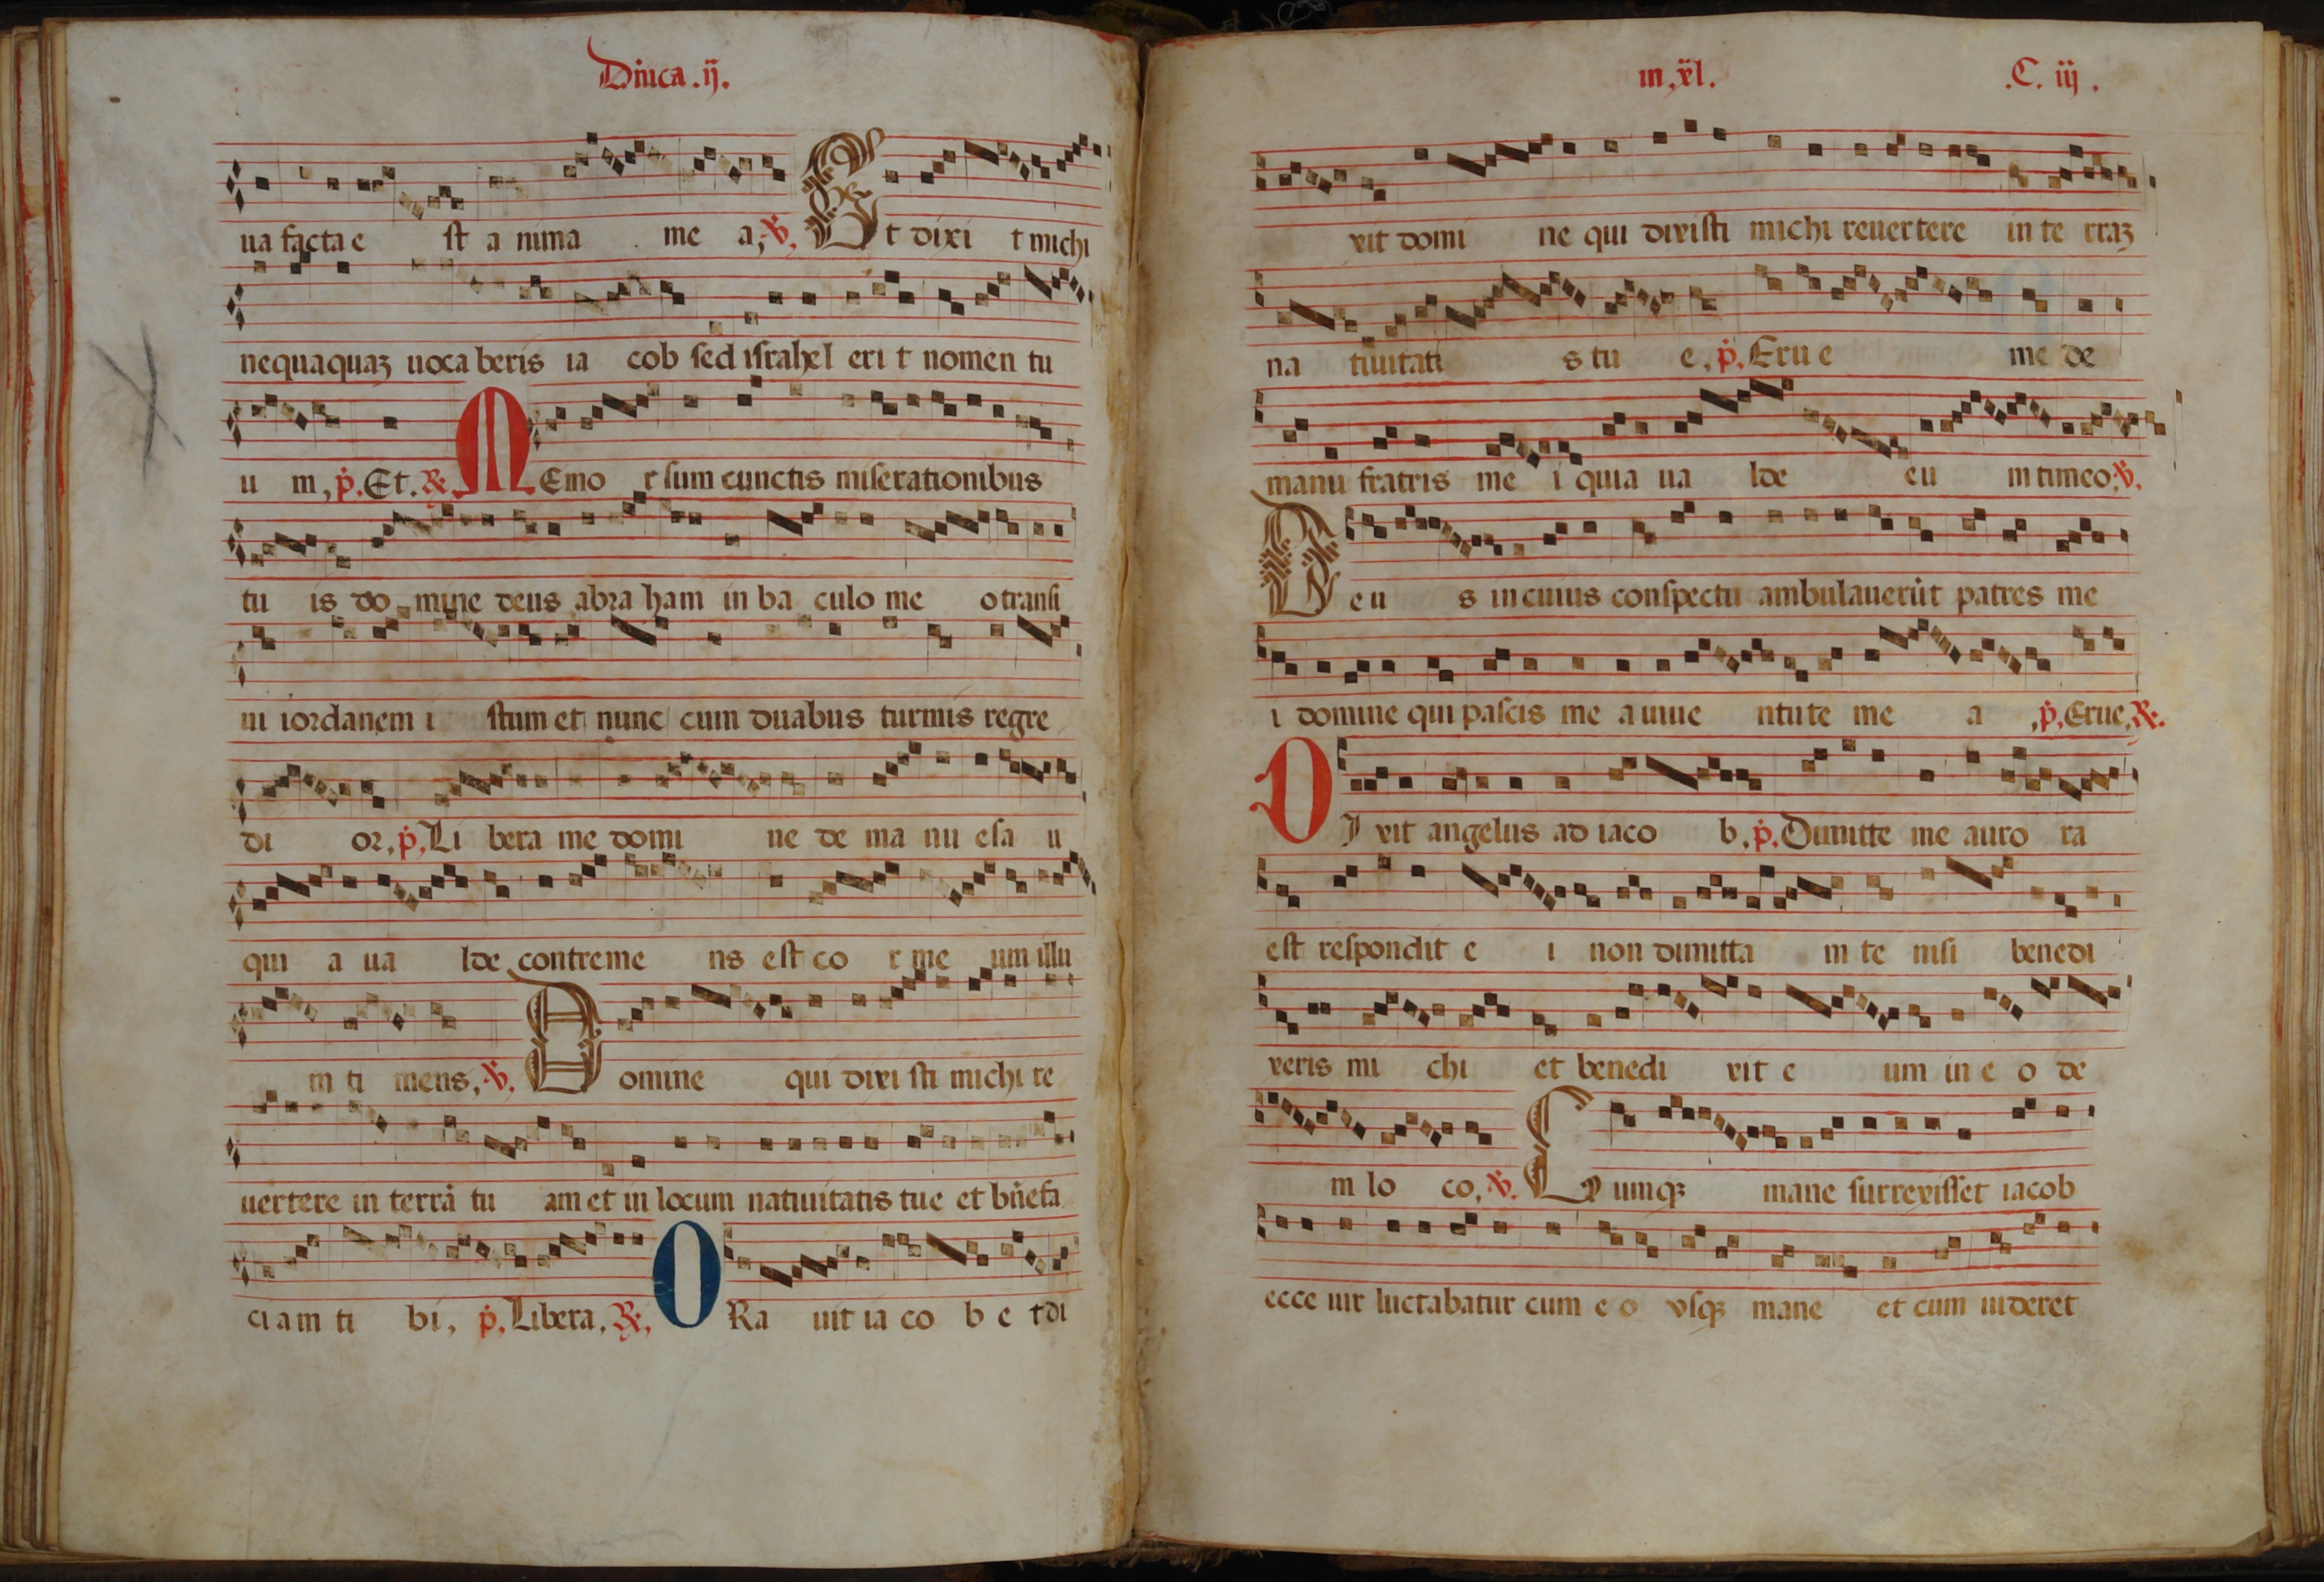 Dn̄ica .ij.
ua facta e st a nima me a, ℣. Et dixi t michi
nequaquaꝫ uoca beris ia cob sed israhel eri t nomen tu
u m, p̄. Et. ℟. MEmo r sum cunctis miserationibus
tu is do mine deus abraham in ba culo me o transi
ui iordanem i stum et nunc cum duabus turmis regre
di or, p̄. Li bera me domi ne de ma nu esa u
qui a ua lde contreme ns est co r me um illu
m ti mens, ℣. Domine qui dixi sti michi re
uertere in terrā tu am et in locum natiuitatis tue et bn̄efa
ciam ti bi, p̄. Libera, ℟, ORa uit ia co b e t di
in .xl. .C. iij.
xit domi ne qui dixisti michi reuertere in te rraꝫ
na tiuitati s tu e, p̄. Eru e me de
manu fratris me i quia ua lde eu m timeo, ℣.
Deu s in cuius conspectu ambulauerūt patres me
i domine qui pascis me a iuue ntute me a , p̄, Erue, ℟.
DIxit angelus ad iaco b, p̄. Dimitte me auro ra
est respondit e i non dimitta m te nisi benedi
xeris mi chi et benedi xit e um in e o de
m lo co, ℣. Cumqꝫ mane surrexisset iacob
ecce uir luctabatur cum e o vsqꝫ mane et cum uideret